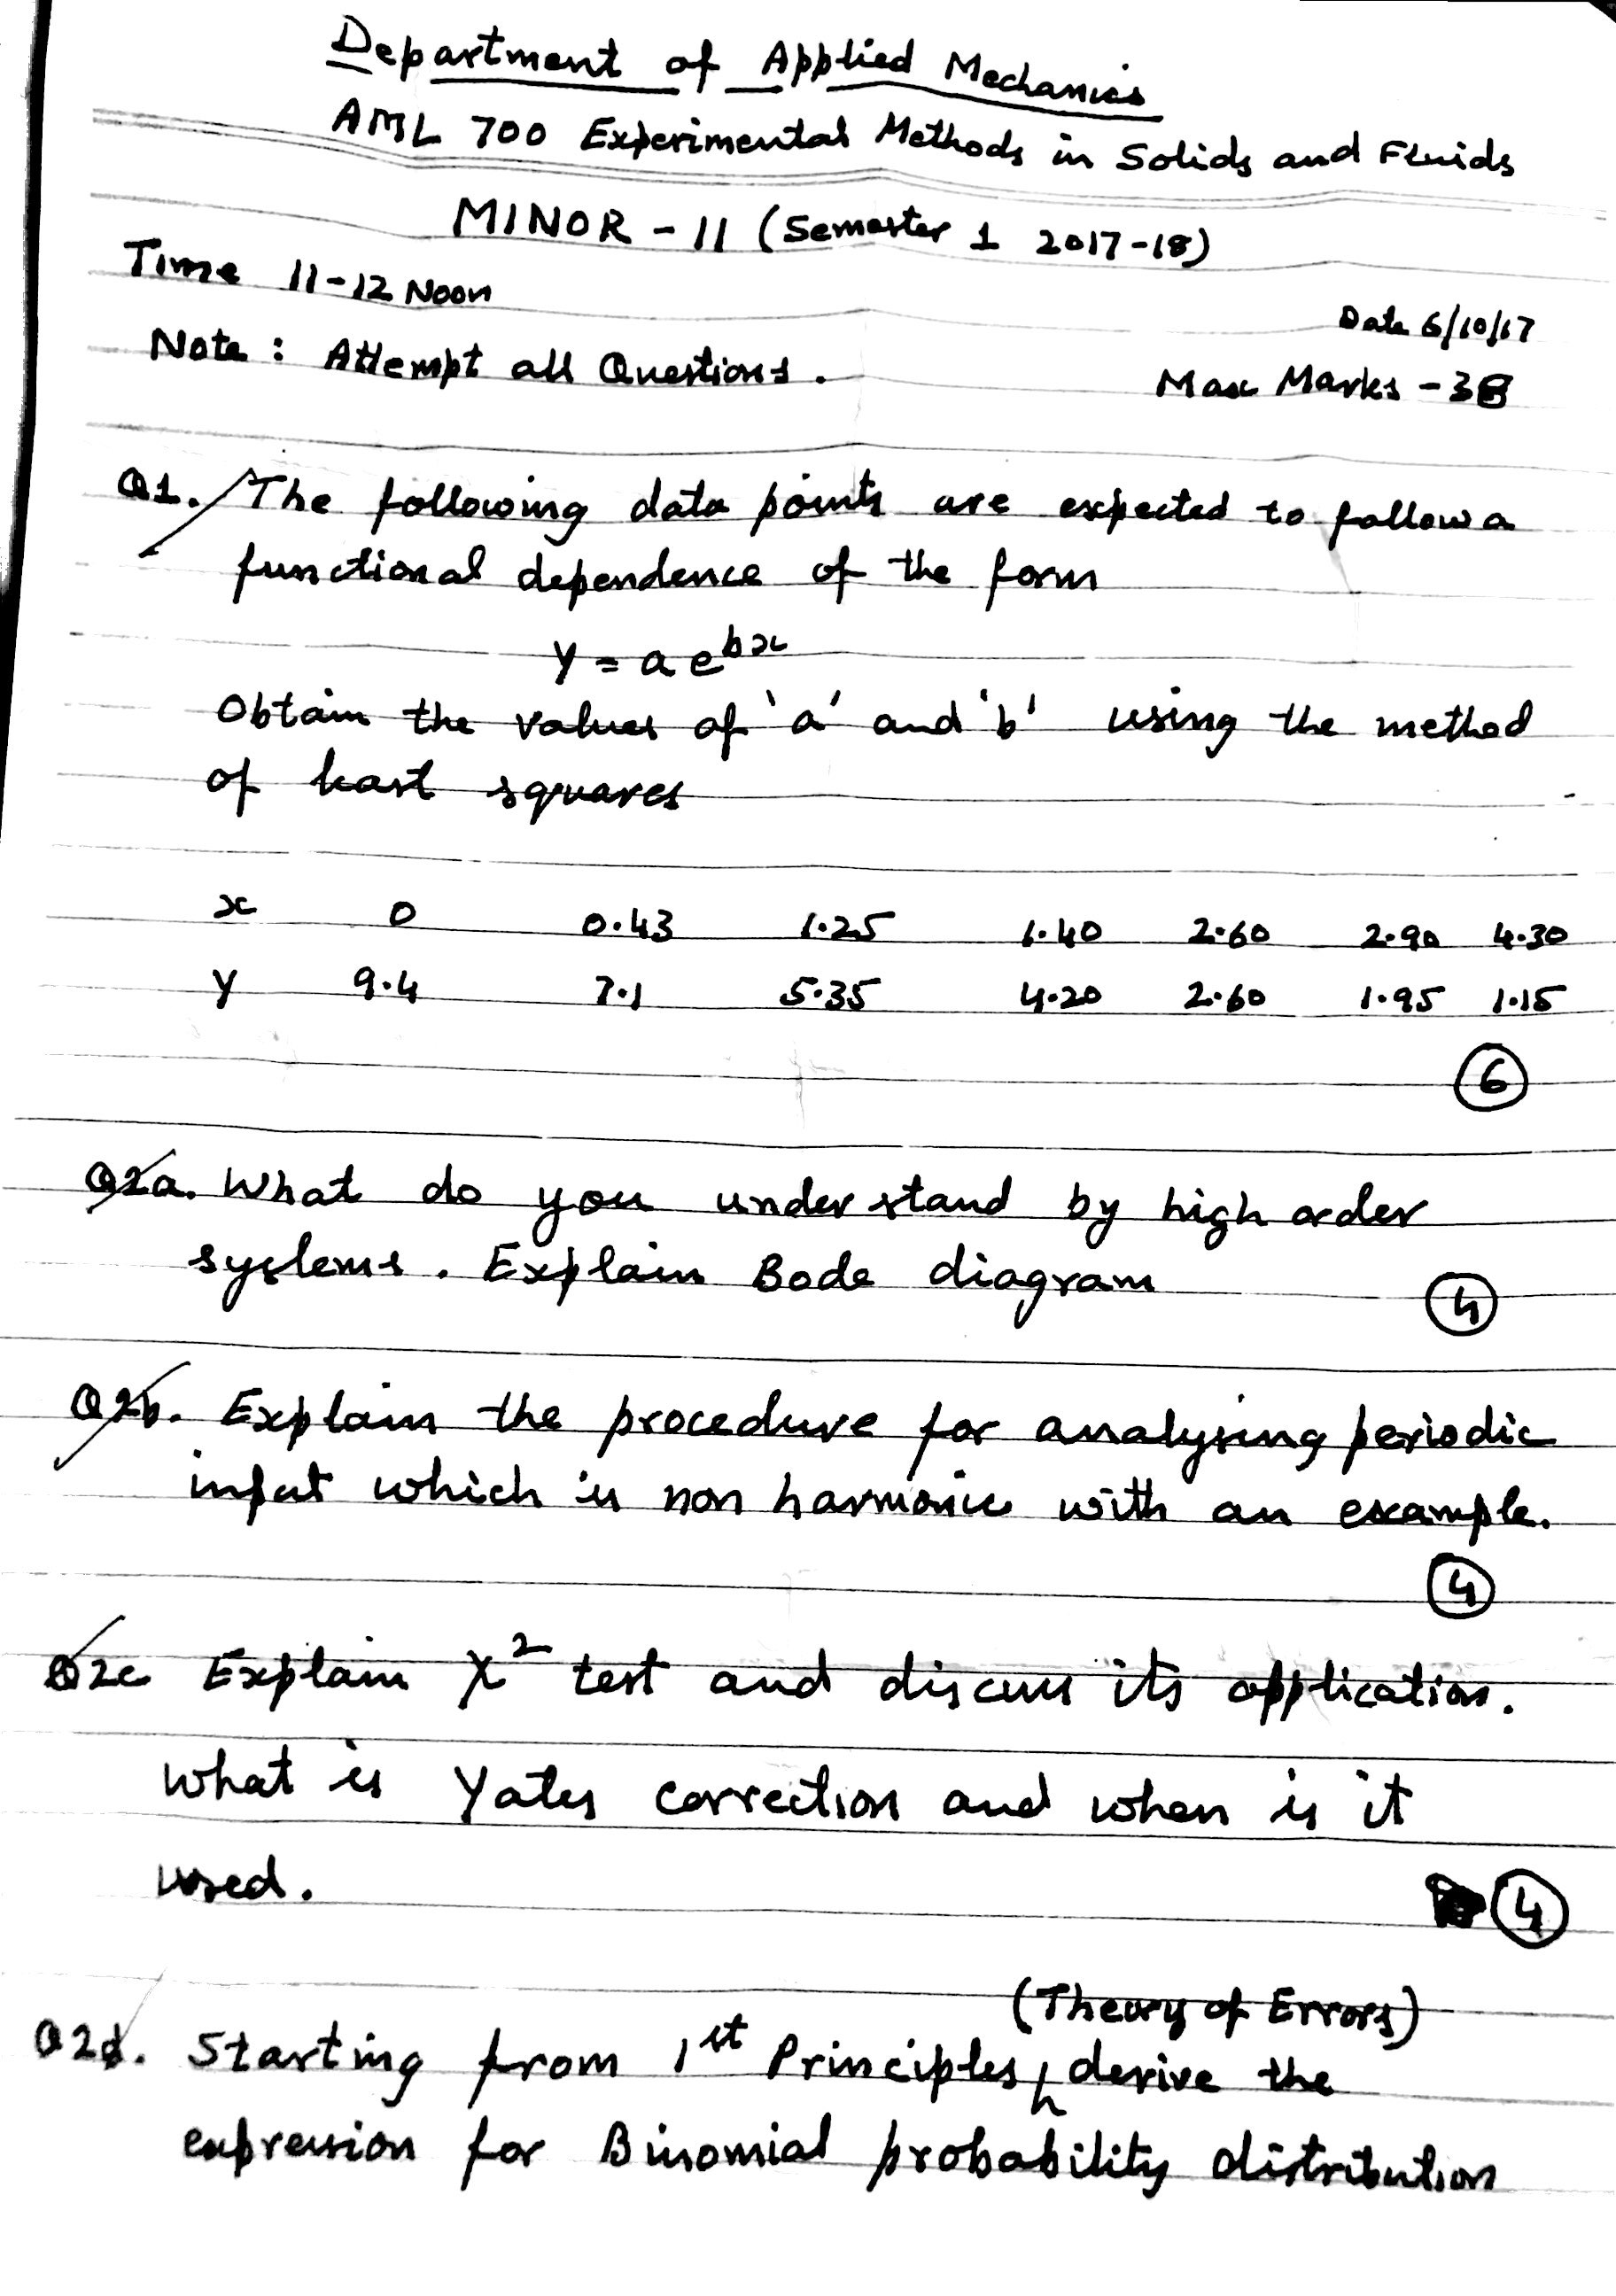 Department of Applied Mechanics
AML 700 Experimental Methods in Solids and Fluids
MINOR - II (Semester 1 2017-18)
Time 11-12 Noon
Date 6/10/17
Note : Attempt all Questions.
Max Marks - 38
Q1. The following data points are expected to follow a
functional dependence of the form
y = a e^bx
Obtain the values of 'a' and 'b' using the method
of least squares
x 0 0.43 1.25 1.40 2.60 2.90 4.30
y 9.4 7.1 5.35 4.20 2.60 1.95 1.15
6
Q2a. What do you understand by high order
systems. Explain Bode diagram
4
Q2b. Explain the procedure for analysing periodic
input which is non harmonic with an example.
4
Q2c Explain χ² test and discuss its application.
What is Yates correction and when is it
used.
4
(Theory of Errors)
Q2d. Starting from 1st Principles, derive the
expression for Binomial probability distribution